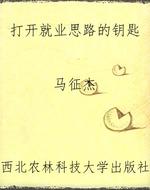 打开就业思路的钥匙
马征杰
西北农林科技大学出版社